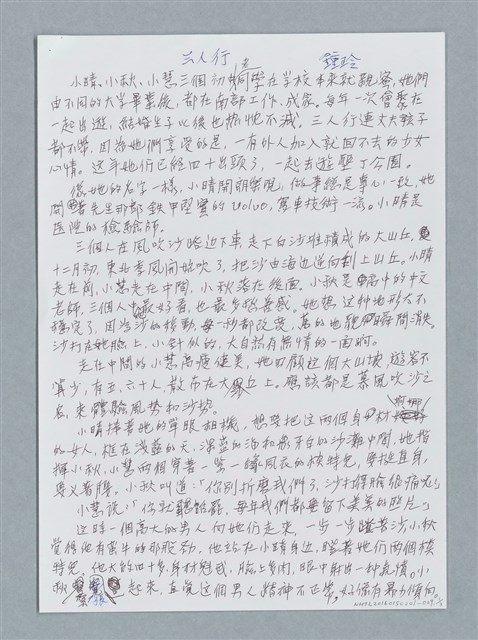 三人行
鍾玲
小晴、小秋、小慧三個初高中同學在学校本來就親密,她們
由不同的大学畢業後,都在南部工作、成家。每年一次會聚在
一起出遊,結婚生子以後也熱忱不減。三人行連丈夫孩子
都不帶,因為她們享受的是,一有外人加入就回不去的少女
心情。这年她们已經四十出頭了,一起去遊墾丁公園。
像她的名字一樣,小晴開朗樂觀,做事總是專心一致,她
開著先生那部鉄甲堅實的Volvo,駕車技術一流。小晴是
医院的檢驗師。
三個人在風吹沙路边下車,走下白沙堆積成的大山丘。
十二月初,東北季風開始吹了,把沙由海边逆向刮上山丘。小晴
走在前,小慧走在中間,小秋落在後面。小秋是高中的中文
老師,三個人中最好看,也最多愁善感。她想,这种地形太不
穩定了,因为沙的移動,每一秒都改变,舊的地貌瞬間消失。
沙打在她臉上,小針似的,大自然有無情的一面啊。
走在中間的小慧高瘦健美,她回顧這個大山坡,遊客不
算少,有五、六十人,散布在大丘上。應該都是慕風吹沙之
名,來體驗風势和沙势。
小晴捧著她的單眼相機,想要把这兩個身材
的女人,框在浅蓝的天、深蓝的海和象牙白的沙灘中間,她指
揮小秋、小慧兩個穿着一紫一綠風衣的模特兒,要挺直身,
要义着腰。小秋叫道:「你別折磨我們了,沙打得臉很痛呢!」
小慧説:「你就聽她罷,每年我們都要留下美美的照片。」
这時一個高大的男人向她们走來,一步一步踏著沙,小秋
覺得他有蛮牛的那股劲。他站在小晴身边,瞪著她们兩個模
特兒。他大約四十多,身材魁武,臉上多肉,眼中射出一种氣憤。小
秋緊張起來,直覺這個男人精神不正常,好像有暴力傾向。